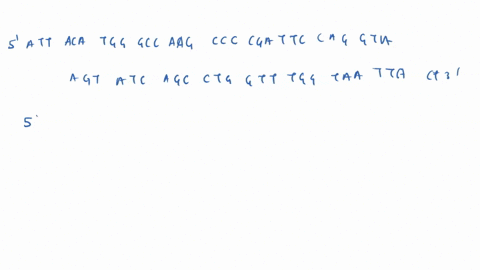 5' ATT ACA TGG GCC AAG CCC CGA TTC CAG GTA
AGT ATC AGC CTG GTT TGG TAA TTA CT 3'
5'